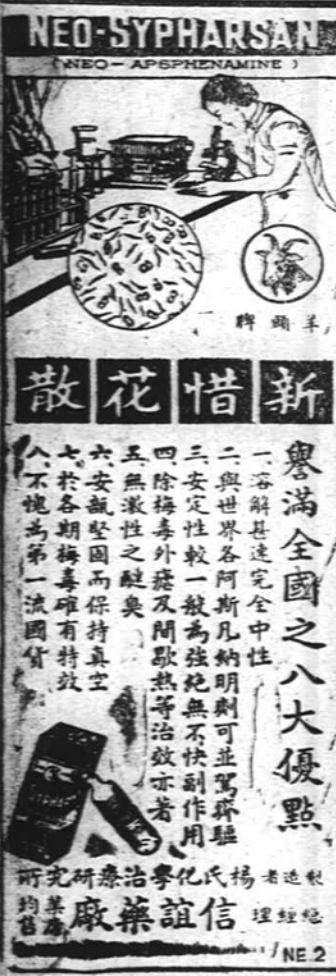 NEO-SYPHARSAN
(NEO-APSPHENAMINE)
羊頭牌
新惜花散
譽滿全國之八大優點
一、溶解甚速完全中性
二、與世界各阿斯凡納明劑可並駕齊驅
三、安定性較一般為強絕無不快副作用
四、除梅毒外瘧及間歇熱等治效亦著
五、無激性之醚臭
六、安瓿堅固而保持真空
七、於各期梅毒確有特效
八、不愧為第一流國貨
製造者 楊氏化學治療研究所
總經理 信誼藥廠
藥房均售
NE.2